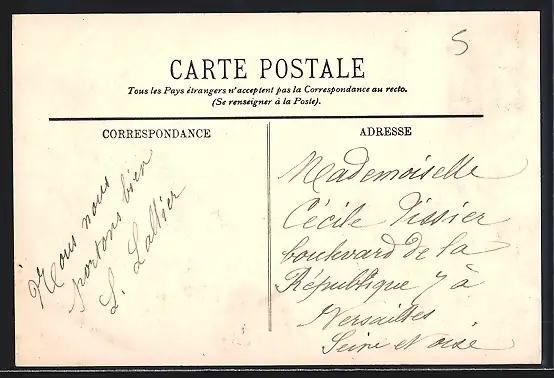 5
CARTE POSTALE
Tous les Pays étrangers n'acceptent pas la Correspondance au recto.
(Se renseigner à la Poste).
CORRESPONDANCE
Nous nous
portons bien
L. Laltier
ADRESSE
Mademoiselle
Cécile Tissier
boulevard de la
République 7 à
Versailles
Seine et Oise